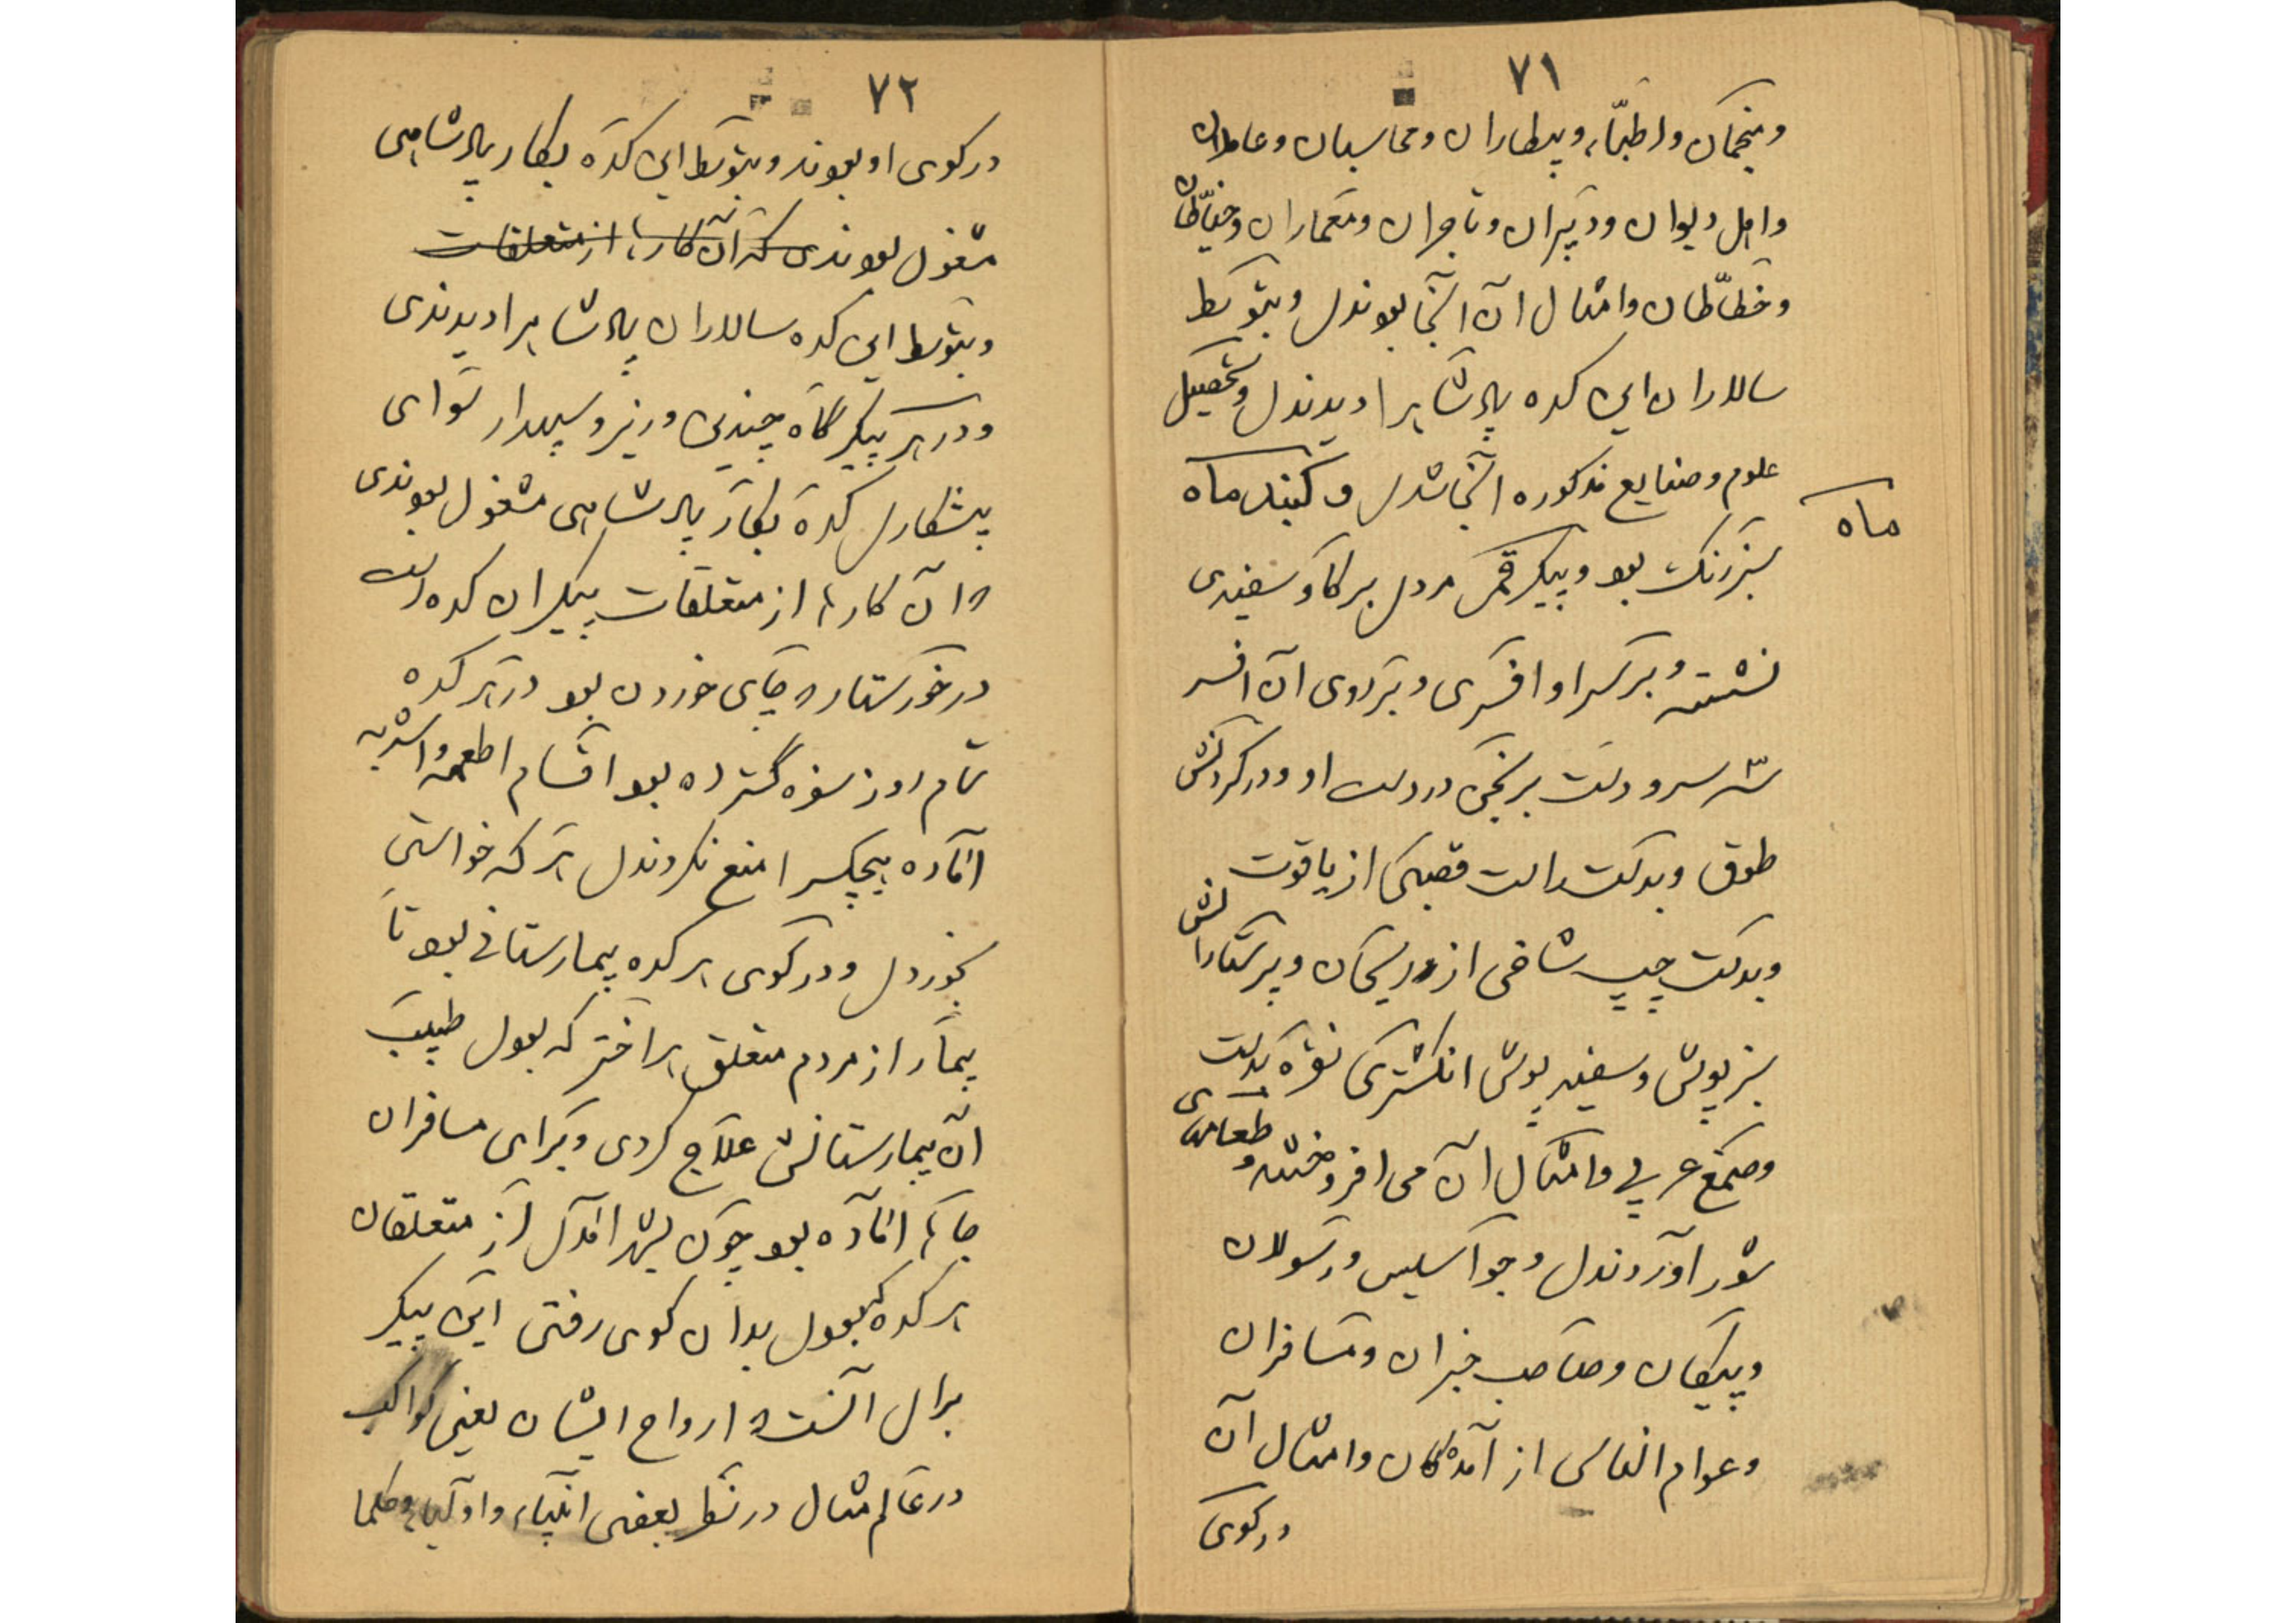 ٧١
ومنجمان واطبّاء وبیطاران ومحاسبان وعاملان
واهل دیوان ودبیران وتاجران ومعماران وخیّاطان
وخطّاطان وامثال آن آنجا بوندی وبتوسط
سالاران این کده پادشاه را دیدندی وتحصیل
علوم وصنایع مذکوره آنجا شدی وگنبد ماه
ماه
سبزرنگ بود وپیکر قمر مردی بر گاو سفیدی
نشسته وبر سر او افسری وبر روی آن افسر
سه سر ودست برنجن در دست او ودر گردنش
طوق وبدست راست قصبکی از یاقوت
وبدست چپ شاخی از ریحان وپرستارانش
سبزپوش وسفید پوش انگشتری نقره بدست
وصمغ عربی وامثال آن می افروختند وطعامهای
شور آوردندی وجواسیس ورسولان
وپیکان وصاحب خبران ومسافران
وعوام الناس از آمدگان وامثال آن
در کوی
٧٢
در کوی او بودند وبتوسط این کده بکار پادشاهی
مشغول بودندی که آن کارها از متعلقات
وبتوسط این کده سالاران پادشاه را دیدندی
ودر هر پیکرگاه چندین وزیر وسپهدار سوای
پیشکاری کده بکار پادشاهی مشغول بودندی
که آن کارها از متعلقات پیکر آن کده است
در خورستار که جای خوردن بود در هر کده
تمام روز سفره گسترده بود اقسام اطعمه واشربه
آماده هیچکس را منع نکردندی هر که خواستی
بخوردی ودر کوی هر کده بیمارستانی بود تا
بیمار از مردم متعلق هر اختر که بودی طبیب
آن بیمارستانش علاج کردی وبرای مسافران
جایها آماده بود چون بشهر آمدی از متعلقان
هر کده که بودی بدان کوی رفتی این پیکر
برای آنست که ارواح ایشان یعنی کواکب
در عالم مثال در نظر بعضی انبیاء واولیاء وحکما